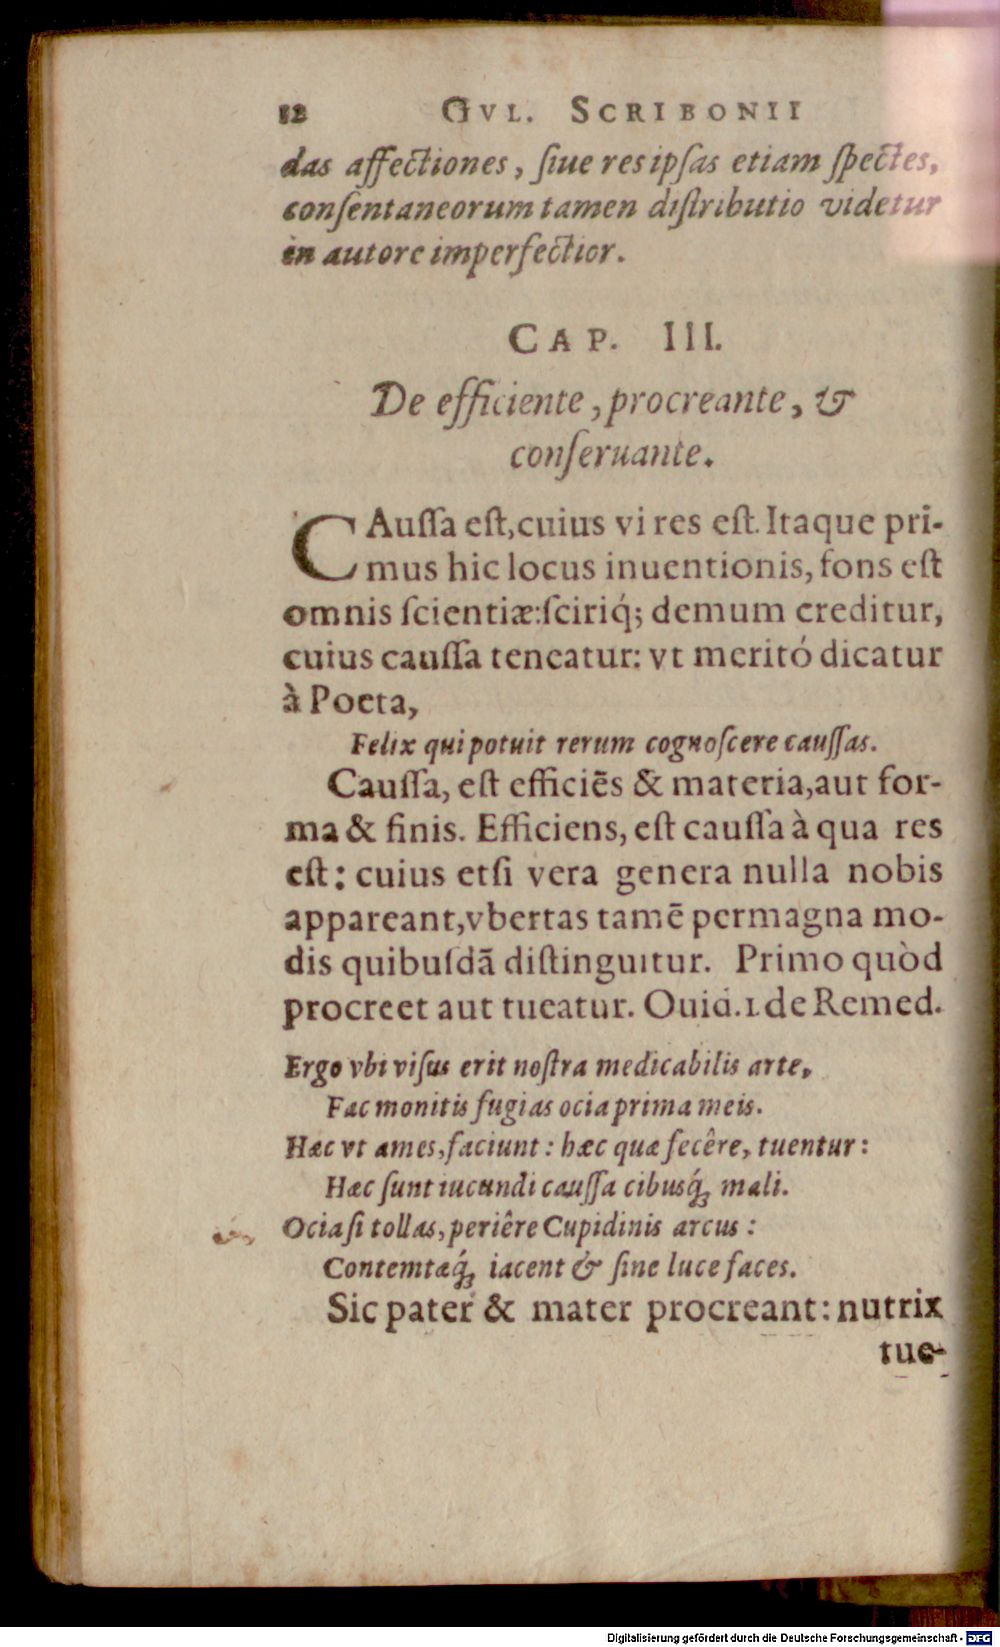 12 GVL. SCRIBONII
das affectiones, ſiue res ipſas etiam ſpectes,
conſentaneorum tamen diſtributio videtur
in autore imperfectior.
CAP. III.
De efficiente, procreante, &
conſeruante.
CAuſſa eſt, cuius vi res eſt. Itaque pri-
mus hic locus inuentionis, fons eſt
omnis ſcientiæ: ſciriq́; demum creditur,
cuius cauſſa teneatur: vt meritó dicatur
à Poeta,
Felix qui potuit rerum cognoſcere cauſſas.
Cauſſa, eſt efficiēs & materia, aut for-
ma & finis. Efficiens, eſt cauſſa à qua res
eſt: cuius etſi vera genera nulla nobis
appareant, vbertas tamē permagna mo-
dis quibuſdā diſtinguitur. Primo quòd
procreet aut tueatur. Ouid. 1. de Remed.
Ergo vbi viſus erit noſtra medicabilis arte,
Fac monitis fugias ocia prima meis.
Hæc vt ames, faciunt: hæc quæ fecêre, tuentur:
Hæc ſunt iucundi cauſſa cibusq́; mali.
Ocia ſi tollas, periêre Cupidinis arcus:
Contemtæq́; iacent & ſine luce faces.
Sic pater & mater procreant: nutrix
tue-
Digitalisierung gefördert durch die Deutsche Forschungsgemeinschaft - DFG